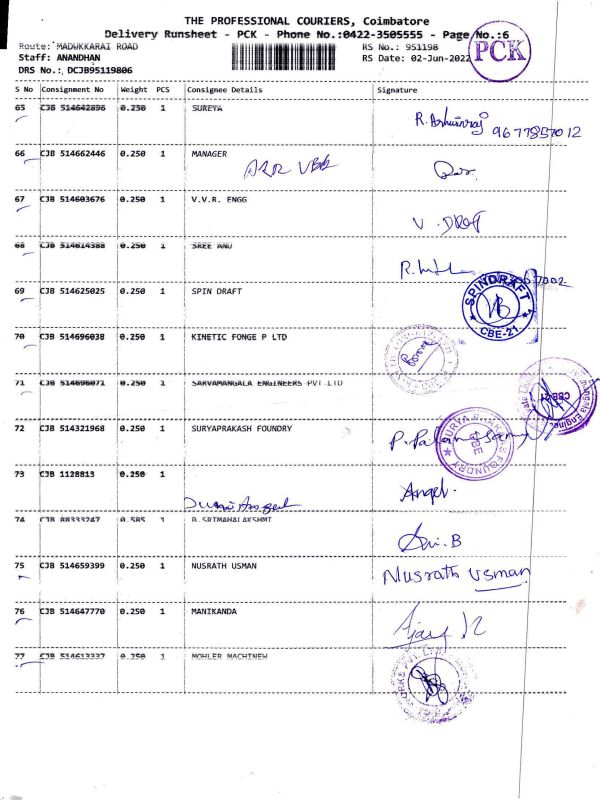 THE PROFESSIONAL COURIERS, Coimbatore
Delivery Runsheet - PCK - Phone No.:0422-3505555 - Page No.:6
Route: MADUKKARAI ROAD RS No.: 951198
Staff: ANANDHAN RS Date: 02-Jun-2022
DRS No.: DCJB95119806
PCK
S No Consignment No Weight PCS Consignee Details Signature
65 CJB 514642896 0.250 1 SURETA
9677857012
66 CJB 514662446 0.250 1 MANAGER
67 CJB 514603676 0.250 1 V.V.R. ENGG
68 CJB 514614388 0.250 1 SREE ANU
69 CJB 514625025 0.250 1 SPIN DRAFT
SPINDRAFT
CBE-21
70 CJB 514696038 0.250 1 KINETIC FONGE P LTD
71 CJB 514696071 0.250 1 SARVAMANGALA ENGINEERS PVT LTD
72 CJB 514321968 0.250 1 SURYAPRAKASH FOUNDRY
73 CJB 1128813 0.250 1
Angel.
74 CJB 88333247 0.585 1 B.SRIMAHALAKSHMI
Sri.B
75 CJB 514659399 0.250 1 NUSRATH USMAN
Nusrath Usman
76 CJB 514647770 0.250 1 MANIKANDA
77 CJB 514613337 0.250 1 MOHLER MACHINEW